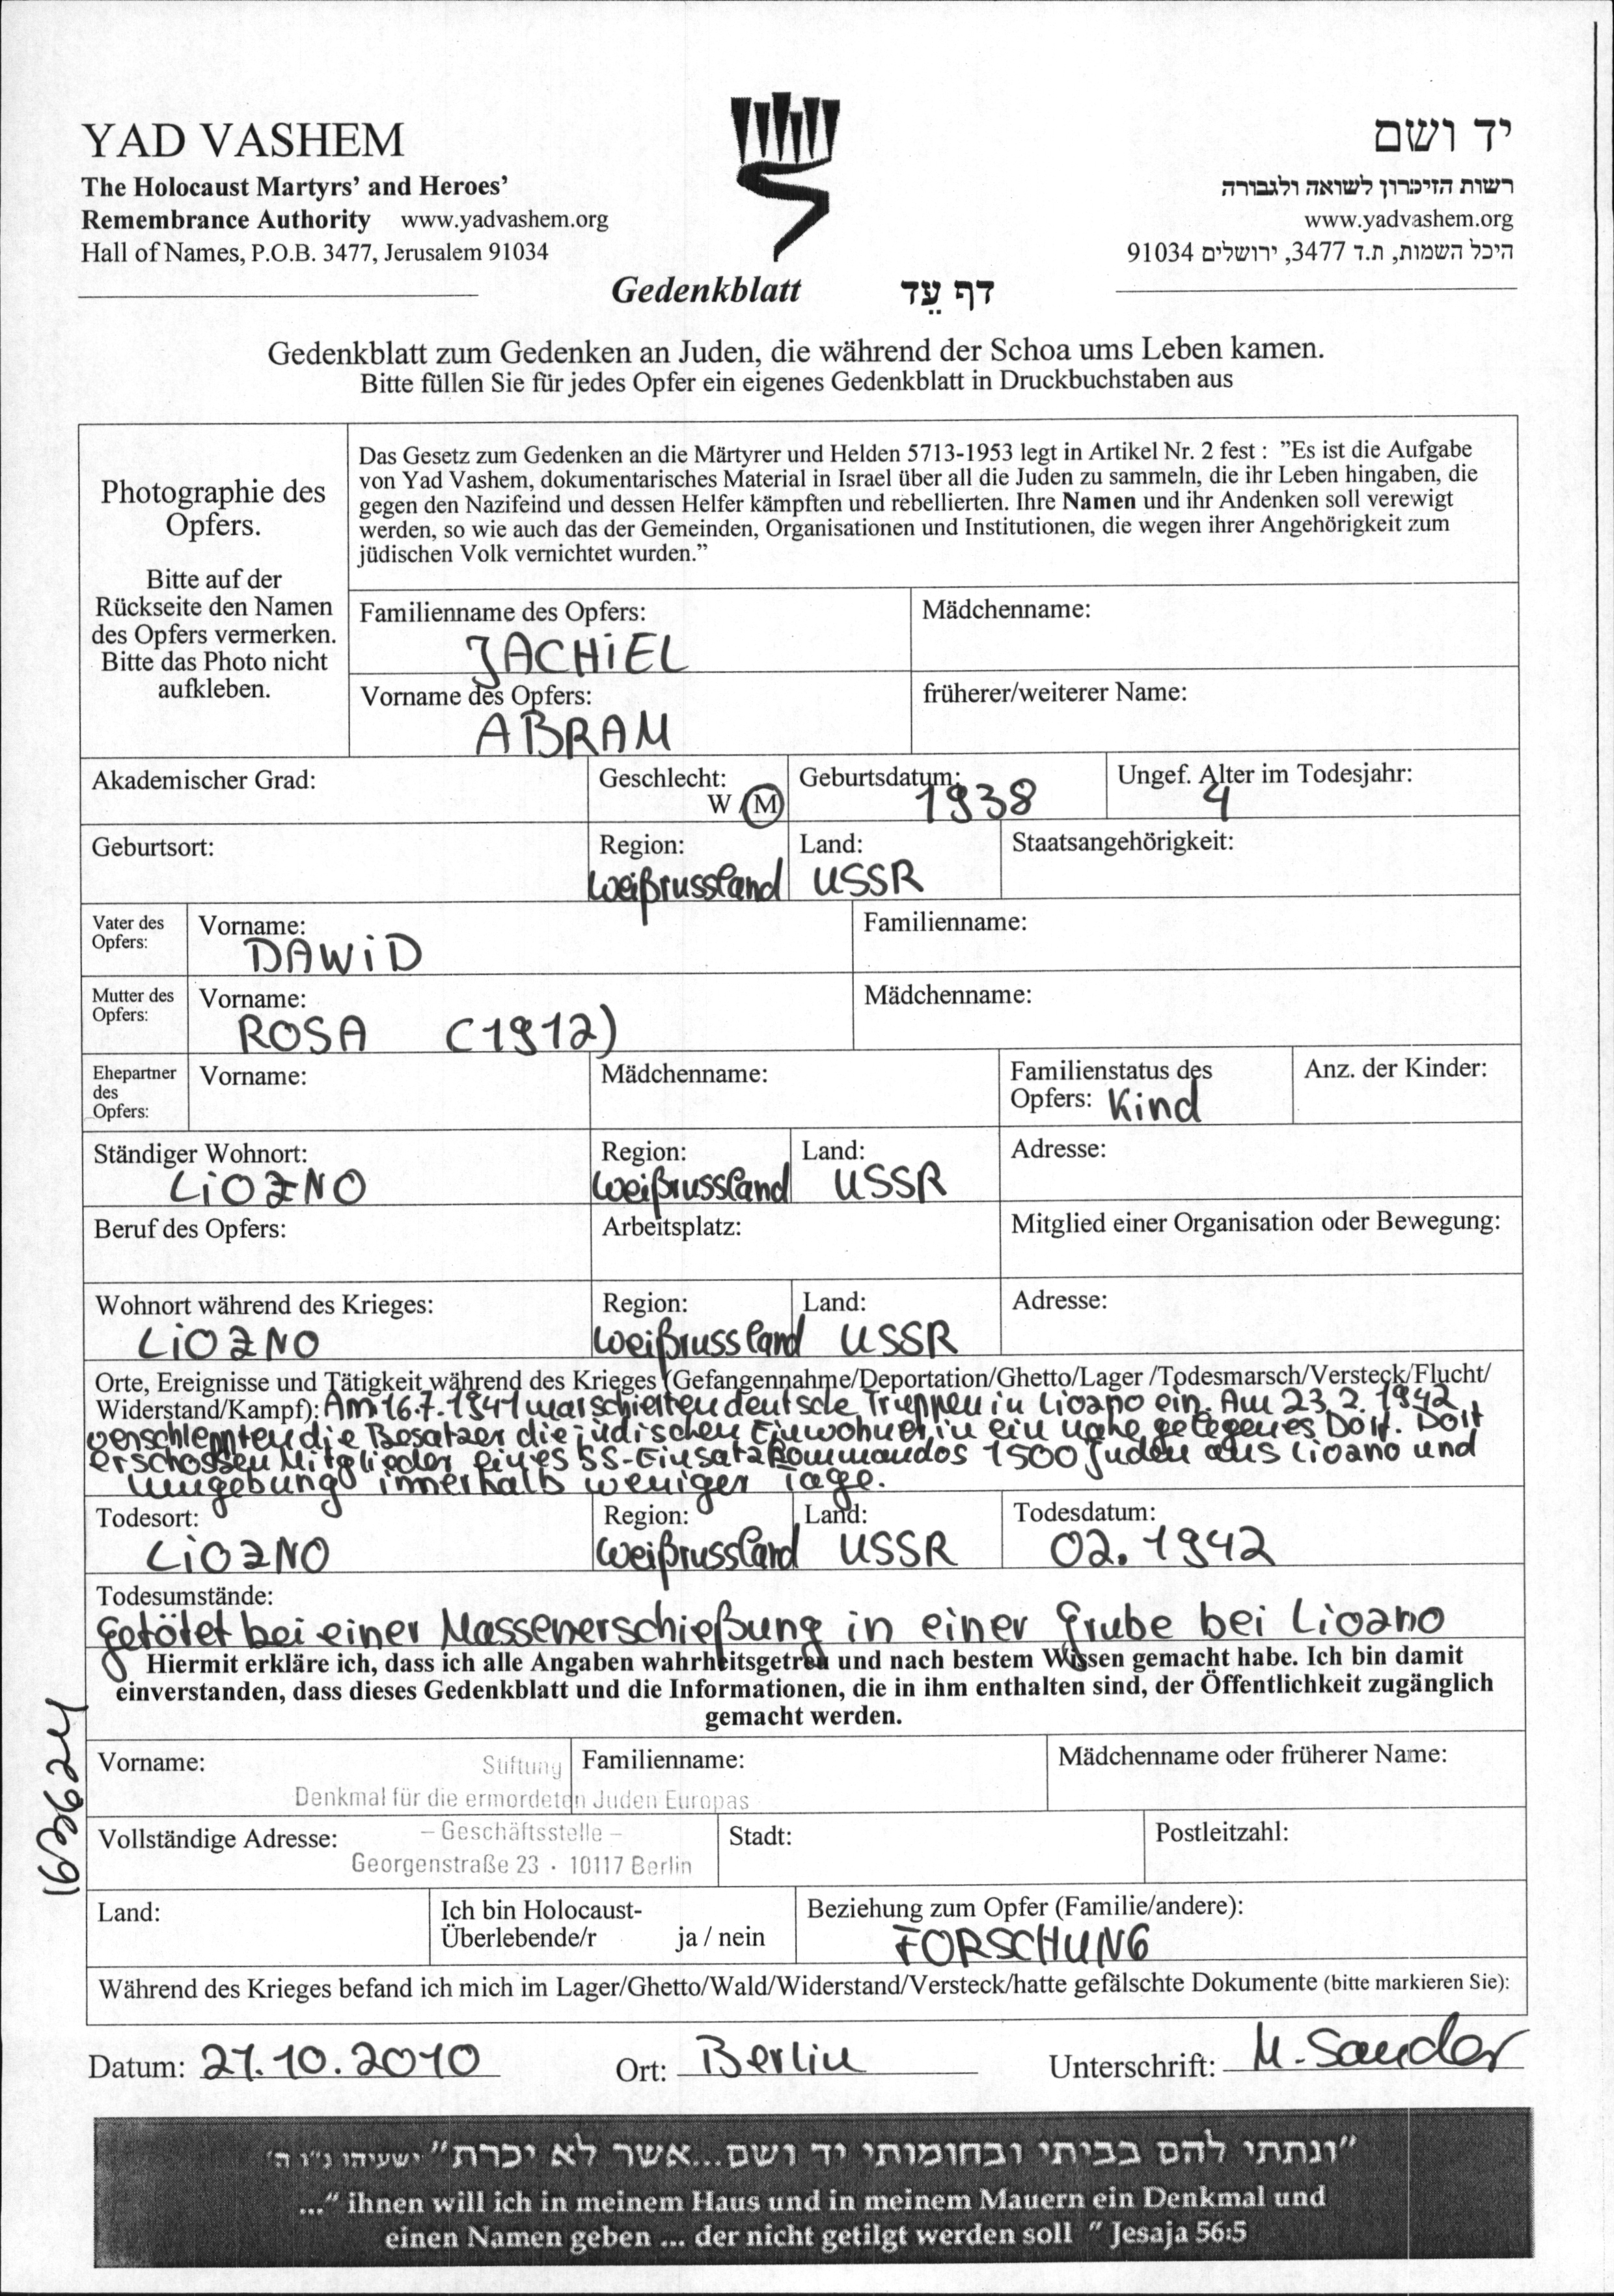 YAD VASHEM
The Holocaust Martyrs' and Heroes'
Remembrance Authority www.yadvashem.org
Hall of Names, P.O.B. 3477, Jerusalem 91034
יד ושם
רשות הזיכרון לשואה ולגבורה
www.yadvashem.org
היכל השמות, ת.ד 3477, ירושלים 91034
Gedenkblatt דף עֵד
Gedenkblatt zum Gedenken an Juden, die während der Schoa ums Leben kamen.
Bitte füllen Sie für jedes Opfer ein eigenes Gedenkblatt in Druckbuchstaben aus
Photographie des
Opfers.
Bitte auf der
Rückseite den Namen
des Opfers vermerken.
Bitte das Photo nicht
aufkleben.
Das Gesetz zum Gedenken an die Märtyrer und Helden 5713-1953 legt in Artikel Nr. 2 fest : "Es ist die Aufgabe
von Yad Vashem, dokumentarisches Material in Israel über all die Juden zu sammeln, die ihr Leben hingaben, die
gegen den Nazifeind und dessen Helfer kämpften und rebellierten. Ihre Namen und ihr Andenken soll verewigt
werden, so wie auch das der Gemeinden, Organisationen und Institutionen, die wegen ihrer Angehörigkeit zum
jüdischen Volk vernichtet wurden."
Familienname des Opfers: Mädchenname:
JACHiEL
Vorname des Opfers: früherer/weiterer Name:
ABRAM
Akademischer Grad: Geschlecht: Geburtsdatum: Ungef. Alter im Todesjahr:
W / M 1938 4
Geburtsort: Region: Land: Staatsangehörigkeit:
Weißrussland USSR
Vater des
Opfers:
Vorname: Familienname:
DAWiD
Mutter des
Opfers:
Vorname: Mädchenname:
ROSA (1912)
Ehepartner
des
Opfers:
Vorname: Mädchenname: Familienstatus des
Opfers: Kind
Anz. der Kinder:
Ständiger Wohnort: Region: Land: Adresse:
LiOZNO Weißrussland USSR
Beruf des Opfers: Arbeitsplatz: Mitglied einer Organisation oder Bewegung:
Wohnort während des Krieges: Region: Land: Adresse:
LiOZNO Weißrussland USSR
Orte, Ereignisse und Tätigkeit während des Krieges (Gefangennahme/Deportation/Ghetto/Lager /Todesmarsch/Versteck/Flucht/
Widerstand/Kampf): Am 16.7.1941 marschierten deutsche Truppen in Liozno ein. Am 23.2.1942
verschleppten die Besatzer die jüdischen Einwohner in ein nahe gelegenes Dorf. Dort
erschossen Mitglieder eines SS-Einsatzkommandos 1500 Juden aus Liozno und
Umgebung innerhalb weniger Tage.
Todesort: Region: Land: Todesdatum:
LiOZNO Weißrussland USSR 02.1942
Todesumstände:
getötet bei einer Massenerschießung in einer Grube bei Liozno
Hiermit erkläre ich, dass ich alle Angaben wahrheitsgetreu und nach bestem Wissen gemacht habe. Ich bin damit
einverstanden, dass dieses Gedenkblatt und die Informationen, die in ihm enthalten sind, der Öffentlichkeit zugänglich
gemacht werden.
163624
Vorname: Familienname: Mädchenname oder früherer Name:
Stiftung
Denkmal für die ermordeten Juden Europas
– Geschäftsstelle –
Vollständige Adresse: Stadt: Postleitzahl:
Georgenstraße 23 · 10117 Berlin
Land: Ich bin Holocaust-
Überlebende/r ja / nein
Beziehung zum Opfer (Familie/andere):
FORSCHUNG
Während des Krieges befand ich mich im Lager/Ghetto/Wald/Widerstand/Versteck/hatte gefälschte Dokumente (bitte markieren Sie):
Datum: 21.10.2010 Ort: Berlin Unterschrift: M. Sander
"ונתתי להם בביתי ובחומותי יד ושם...אשר לא יכרת" ישעיהו נ"ו ה'
..." ihnen will ich in meinem Haus und in meinem Mauern ein Denkmal und
einen Namen geben ... der nicht getilgt werden soll " Jesaja 56:5